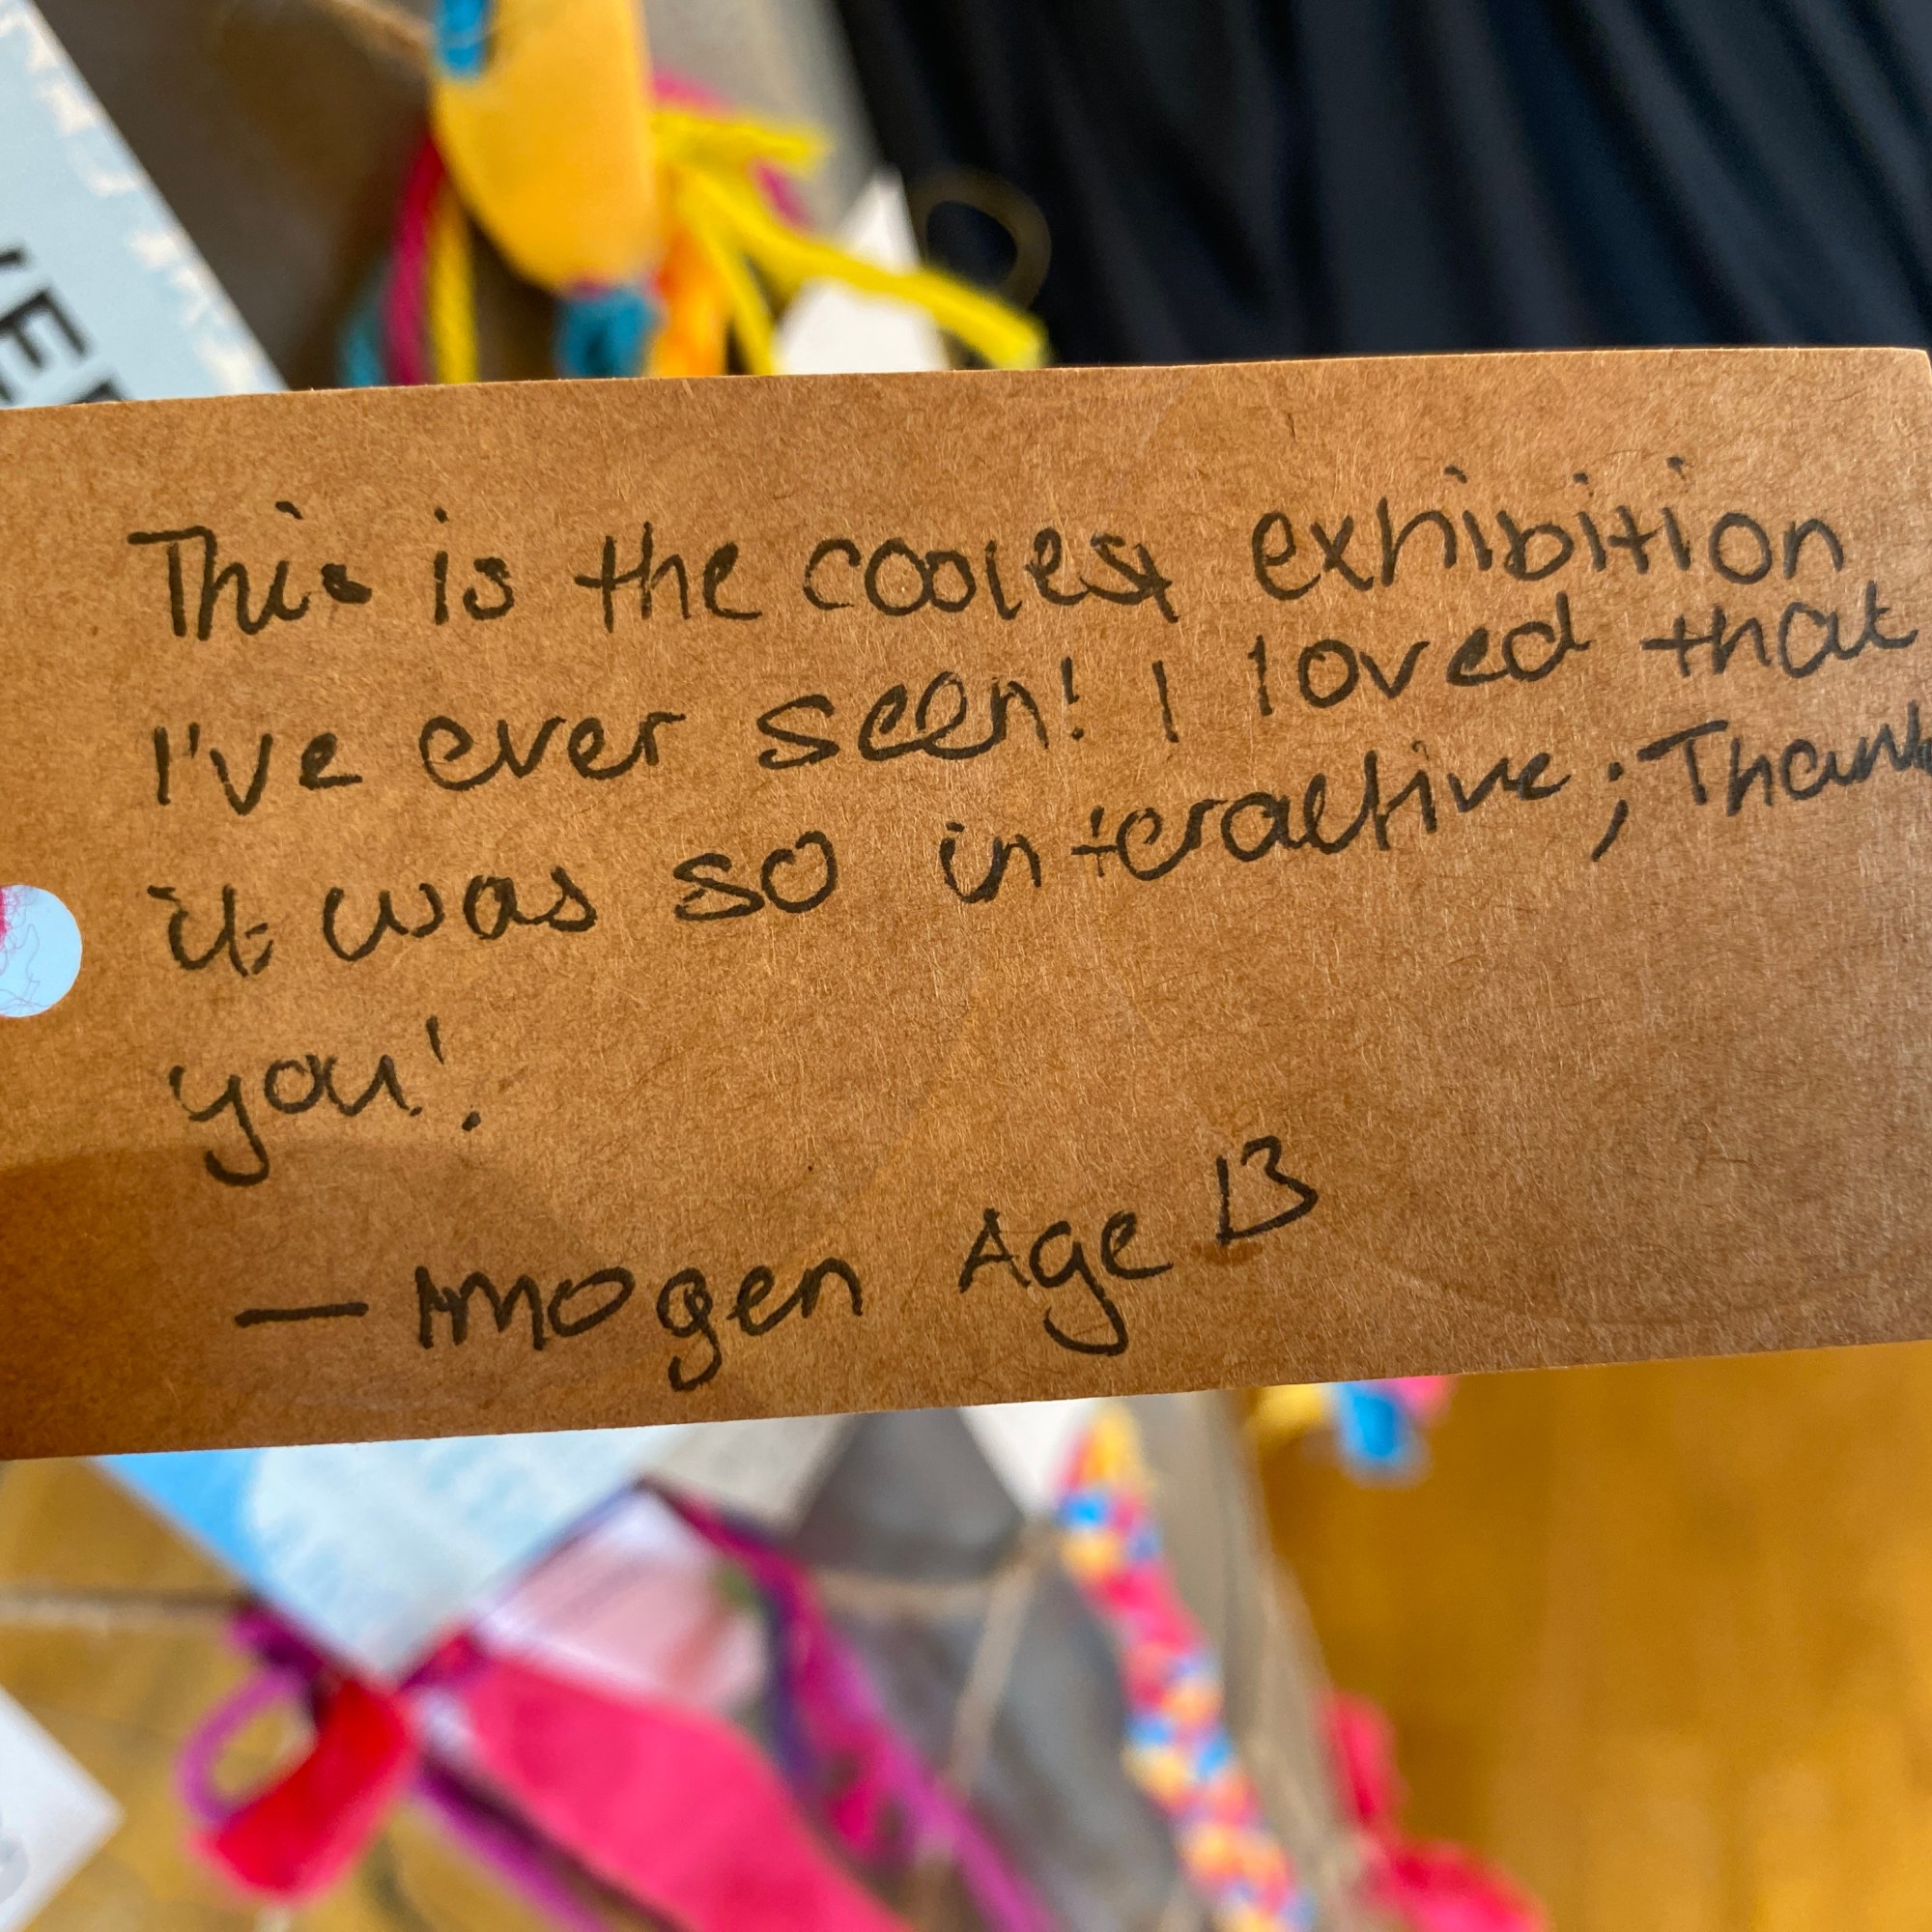 This is the coolest exhibition
I've ever seen! I loved that
it was so interactive; Thank
you!
— Imogen Age 13